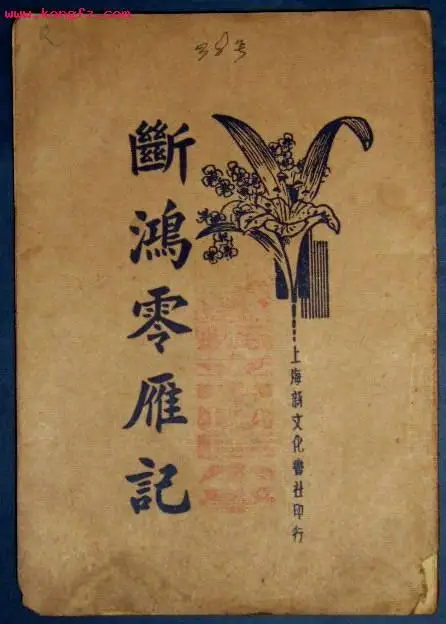 www.kongfz.com
斷鴻零雁記
上海新文化書社印行